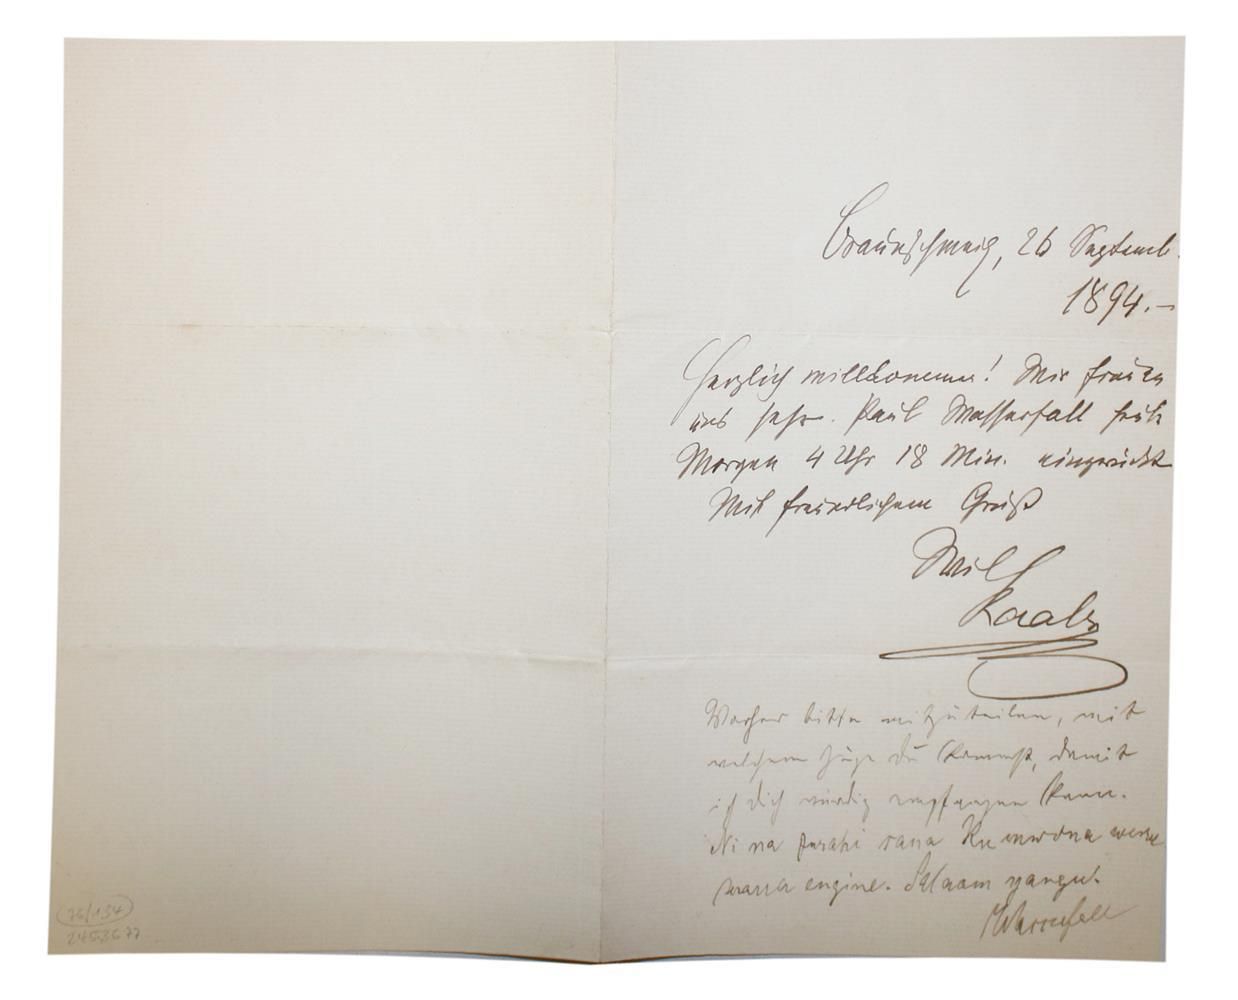 Braunschweig, 26 Septemb.
1894.–
Herzlich willkommen! Wir freuen
uns sehr. Paul Wasserfall früh
Morgen 4 Uhr 18 Min. eingerückt
Mit freundlichem Gruß
Wilh
Raabe
Vorher bitte mitzuteilen, mit
welchem Zuge du kommst, damit
ich dich würdig empfangen kann.
Ni na furahi sana Ku onana wewe
mara engine. Salaam yangu.
Wasserfall
76/134
2453677